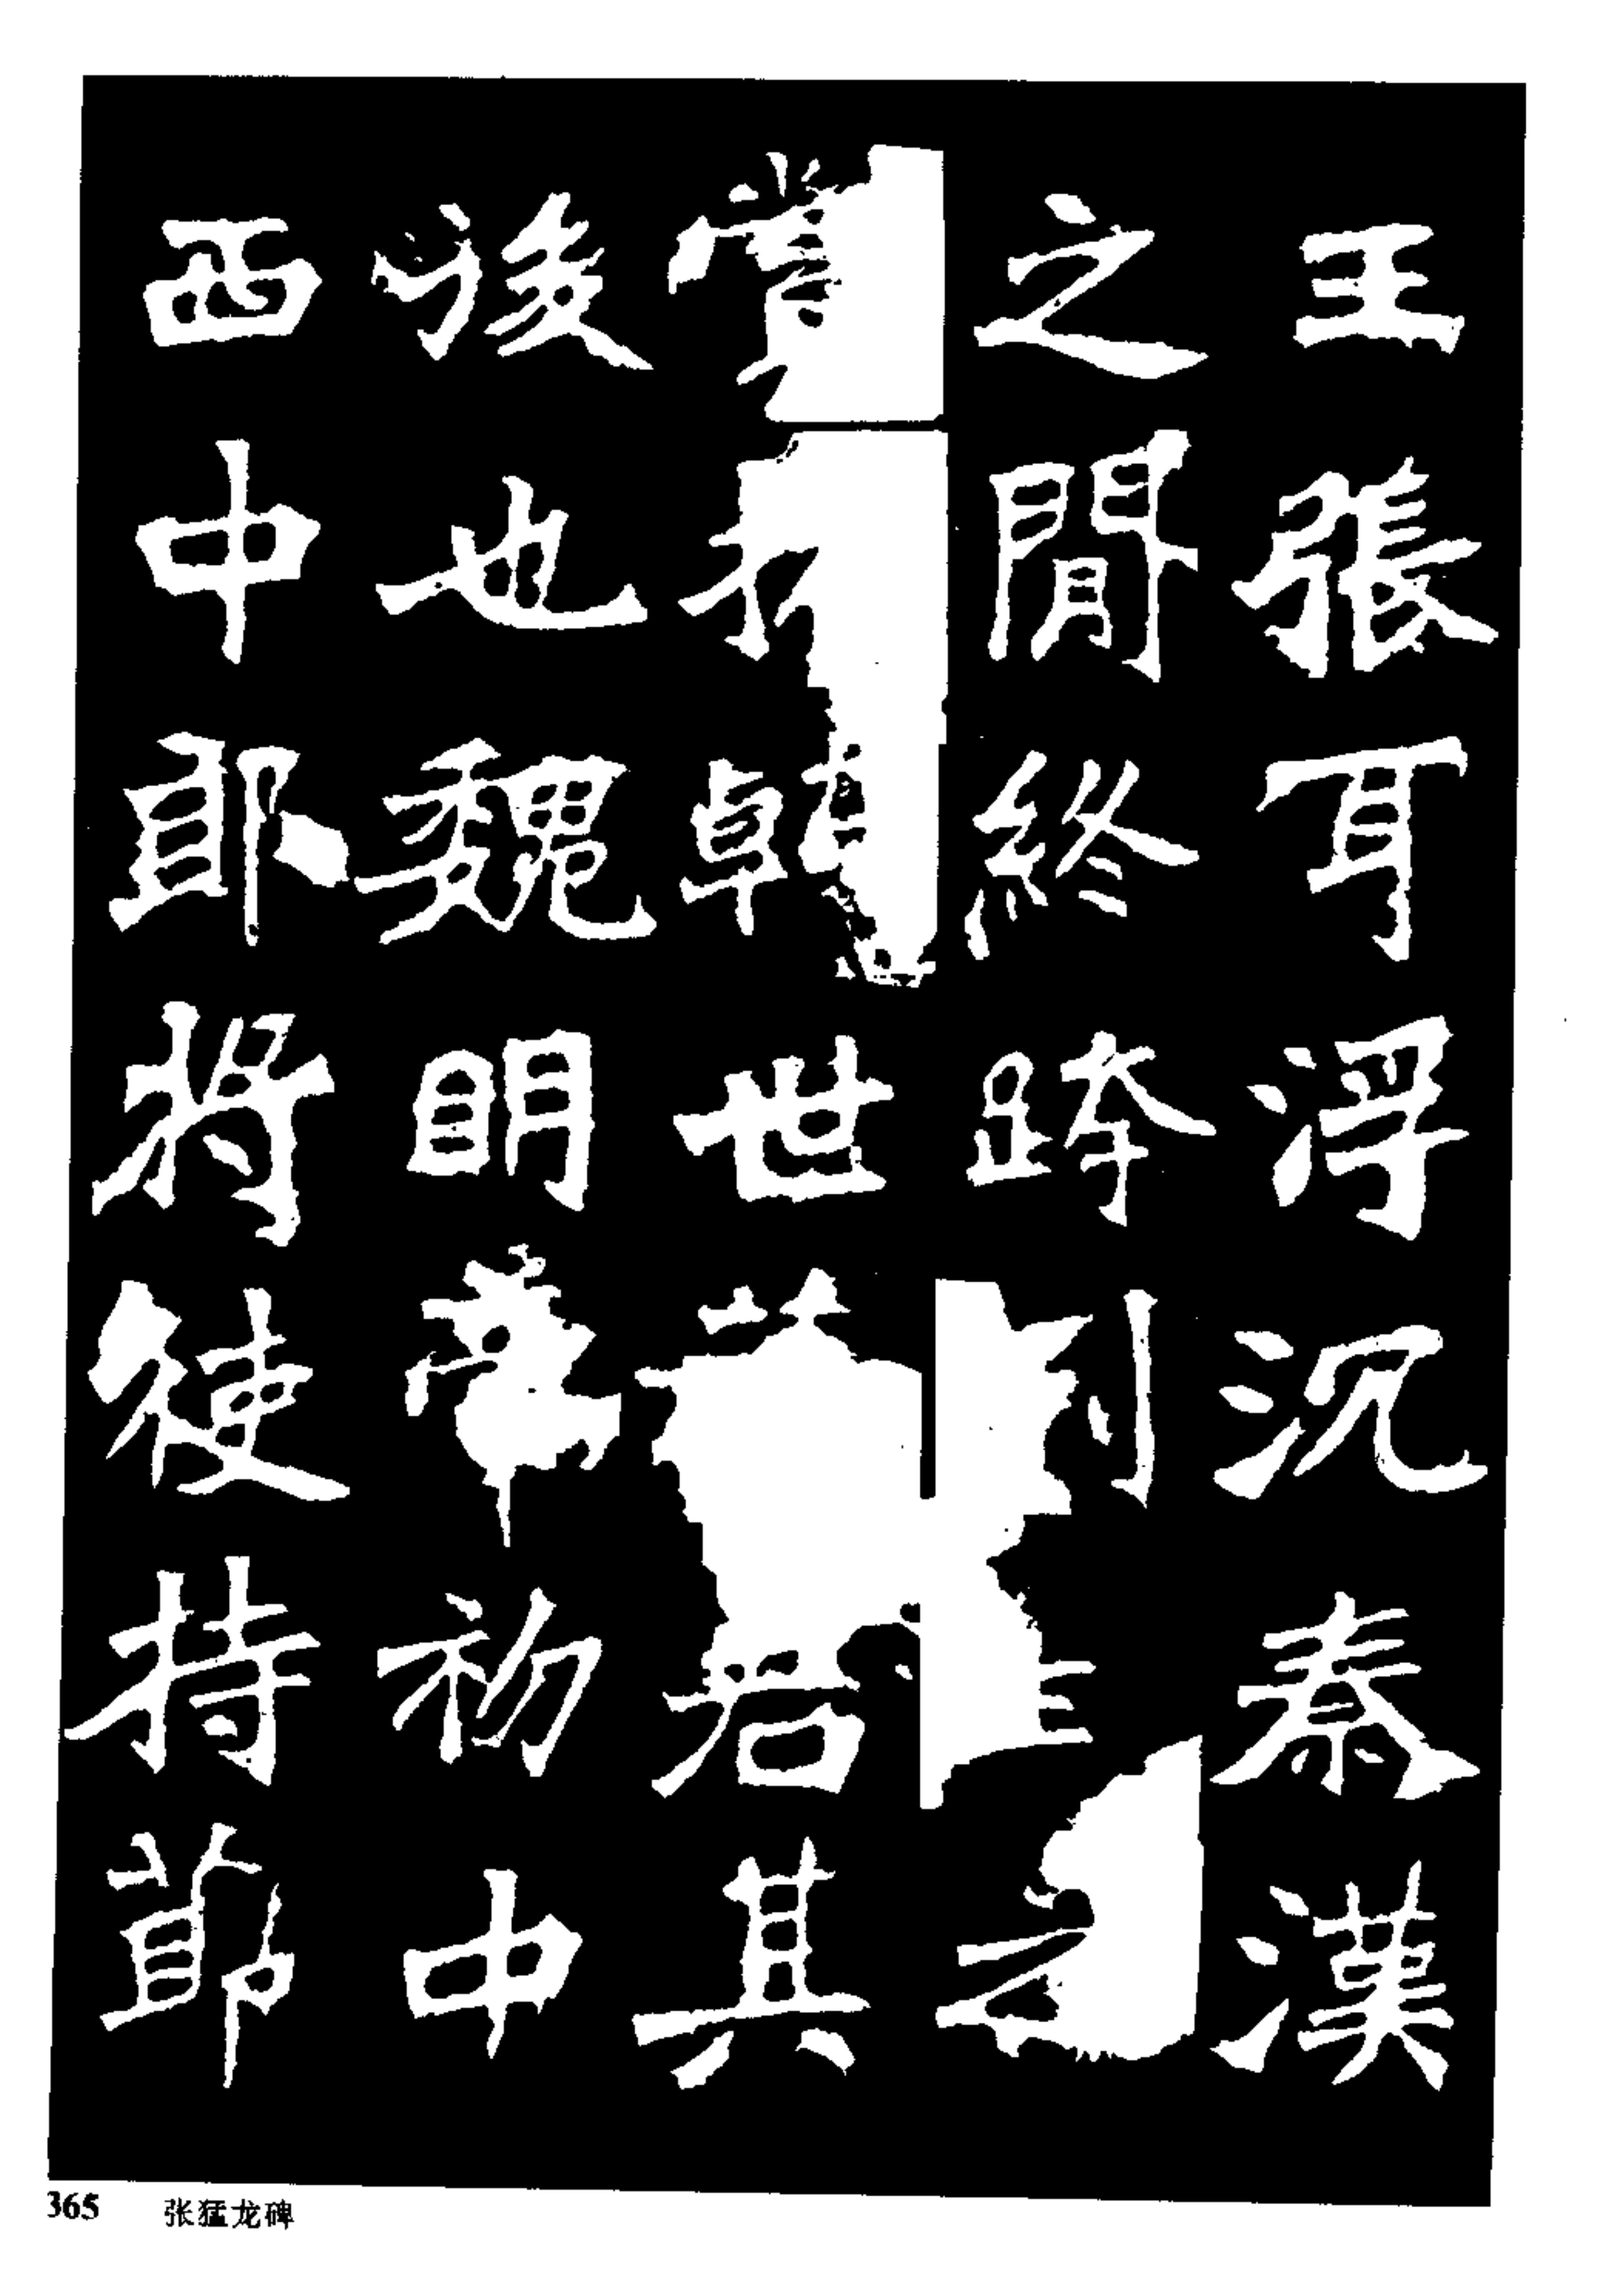 王張耳浮沉秦漢
之間終跨列之
當世君其
後也魏明帝初中
西中郎將使持節
365 张猛龙碑